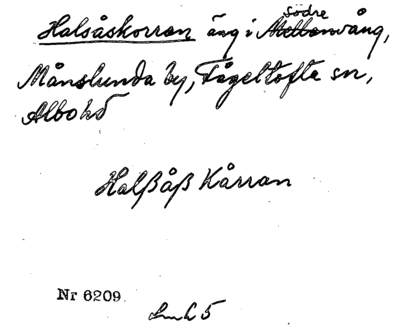 Halsåskorran äng i Södre vång,
Månslunda by, Fågeltofta sn,
Albo hd
Halßåß Kårran
Nr 6209.